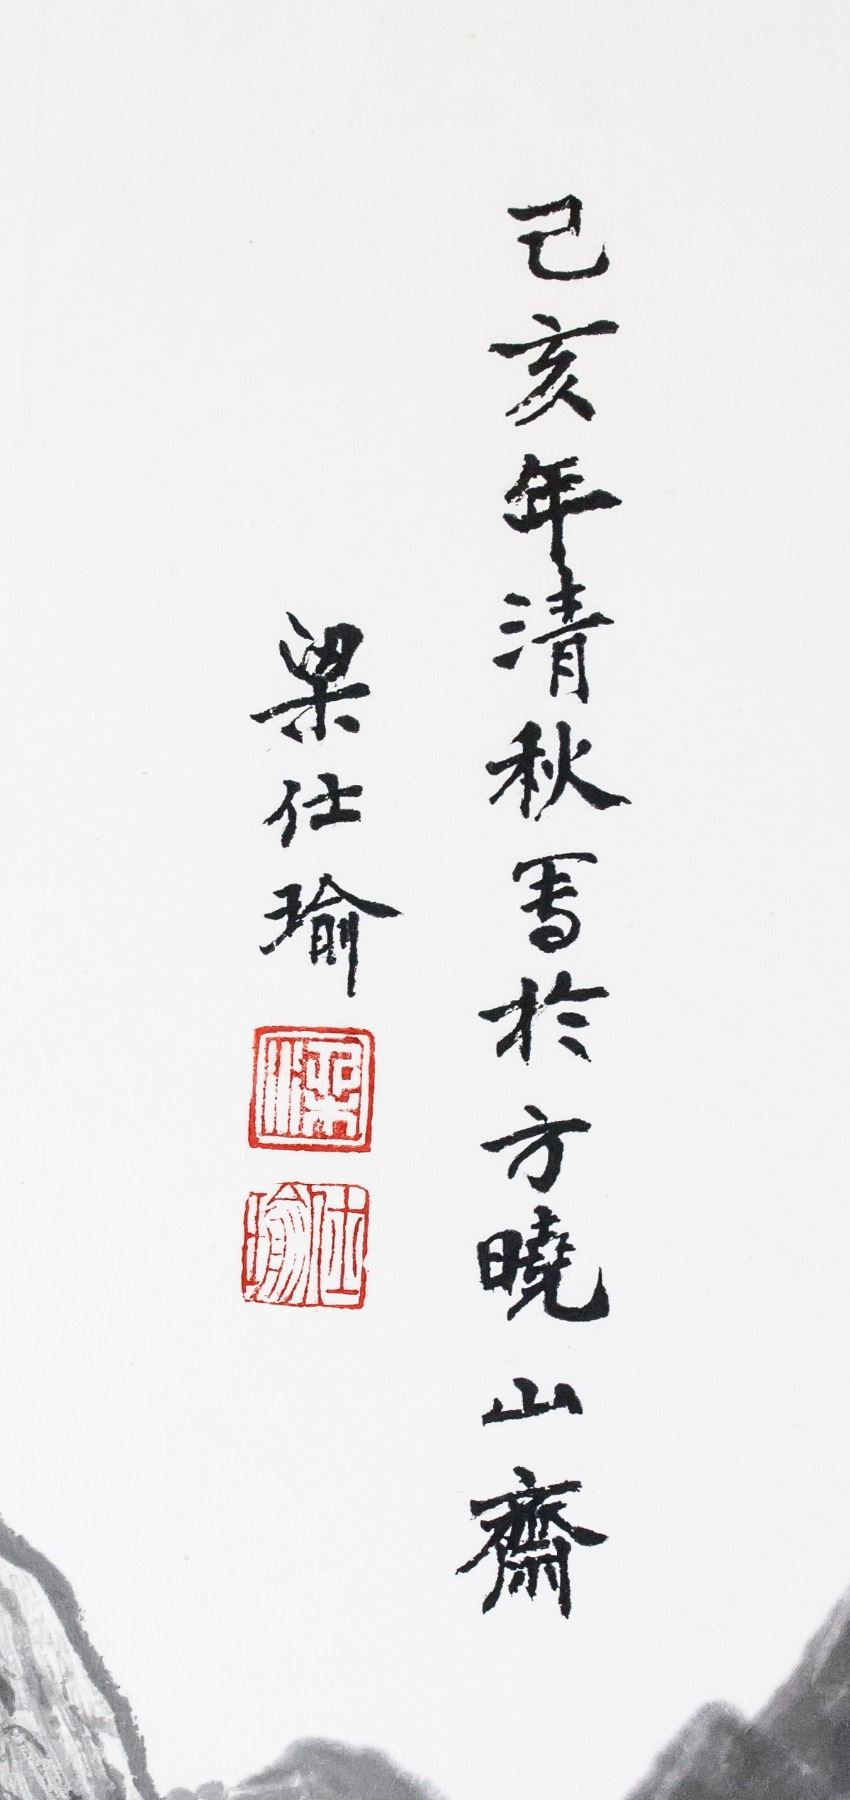 己亥年清秋写於方曉山齋
梁仕瑜
梁
仕瑜